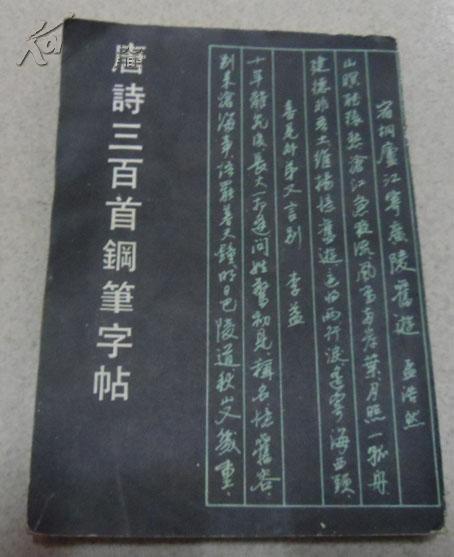 唐詩三百首鋼筆字帖
宿桐廬江寄廣陵舊遊 孟浩然
山暝聽猿愁滄江急夜流風鳴兩岸葉月照一孤舟
建德非吾土維揚憶舊遊還將兩行淚遙寄海西頭
喜見外弟又言別 李益
十年離亂後長大一相逢問姓驚初見稱名憶舊容
別來滄海事語罷暮天鐘明日巴陵道秋山又幾重